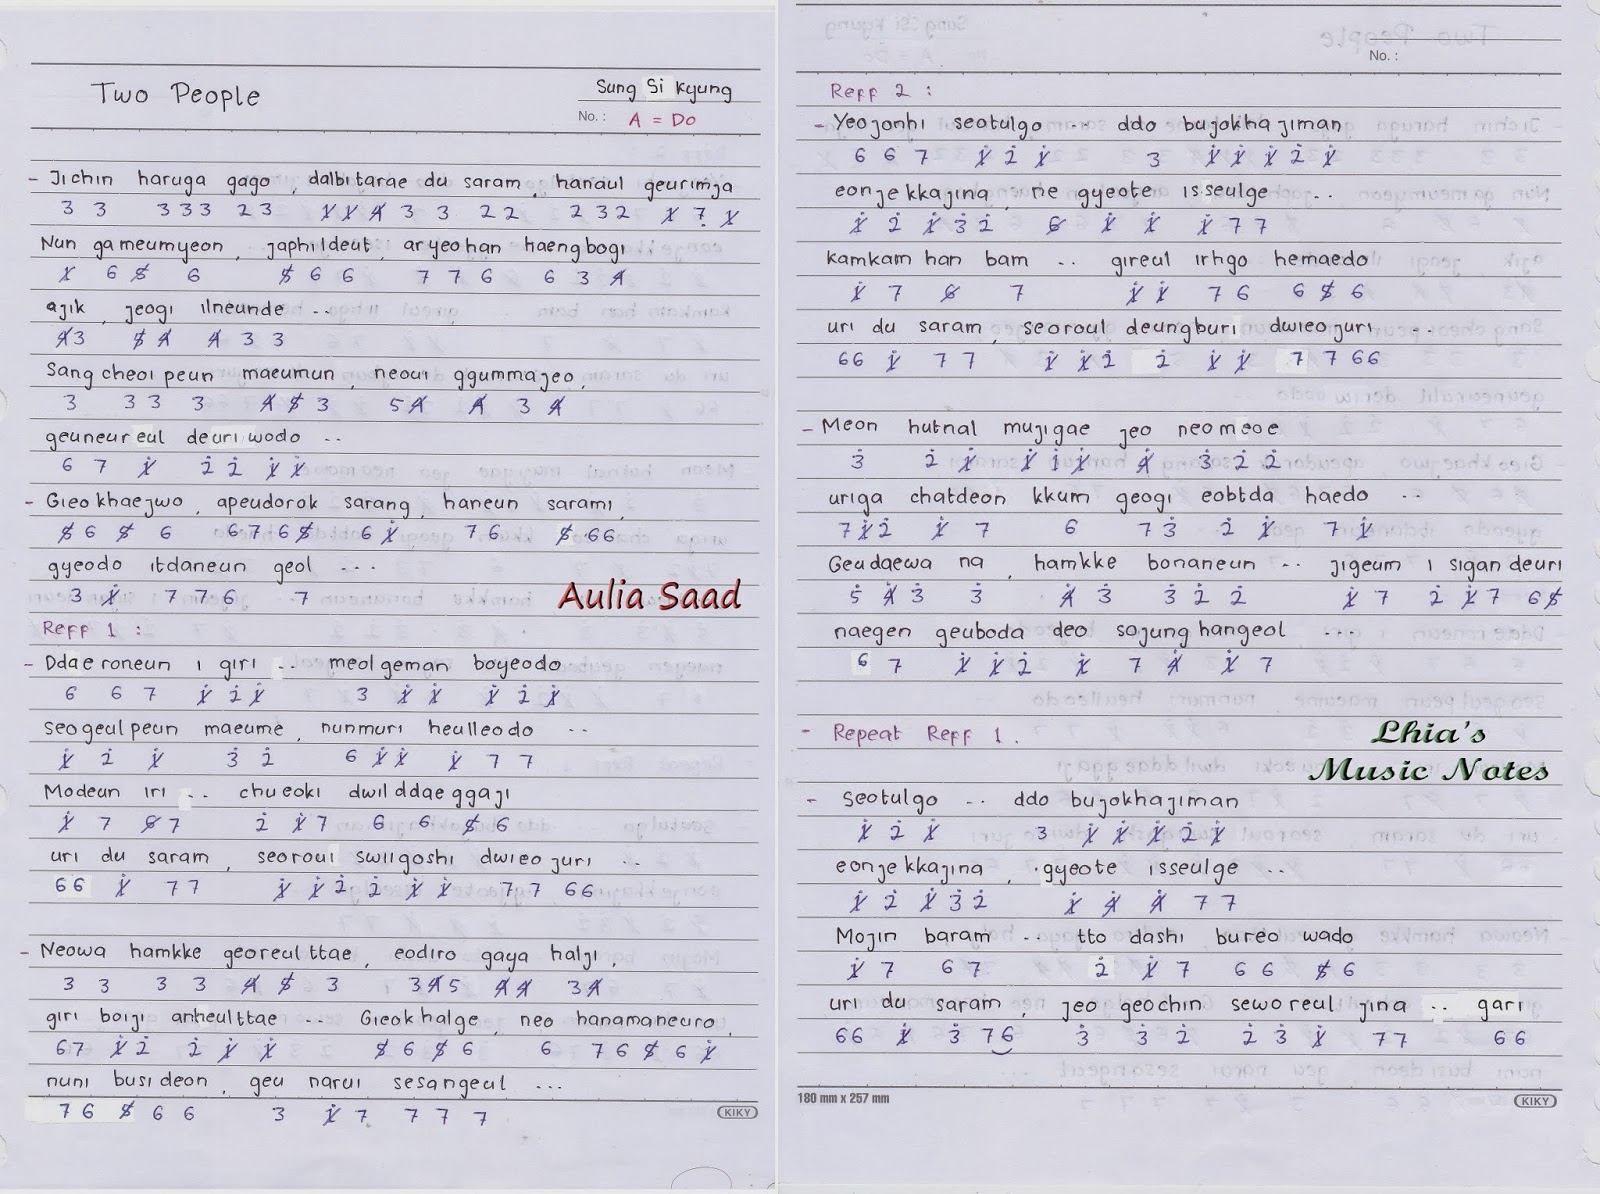 Two People
Sung Si Kyung
No. : A = Do
- Jichin haruga gago , dalbitarae du saram , hanaul geurimja
3 3 3 3 3 2 3 1 1 4 3 3 2 2 2 3 2 1 7 1
Nun gameumyeon , japhildeut , aryeohan haengbogi
1 6 5 6 5 6 6 7 7 6 6 3 4
ajik , jeogi ilneunde ..
4 3 5 4 4 3 3
Sang cheoi peun maeumun , neoui ggummajeo ,
3 3 3 3 4 5 3 5 4 4 3 4
geuneureul deuriwodo ..
6 7 1 2 2 1 1
- Gieokhaejwo , apeudorok sarang , haneun sarami ,
5 6 5 6 6 7 6 5 6 1 7 6 5 6 6
gyeodo itdaneun geol ...
3 1 7 7 6 7
Aulia Saad
Reff 1 :
- Ddaeroneun i giri .. meolgeman boyeodo
6 6 7 1 2 1 3 1 1 1 2 1
seogeulpeun maeume , nunmuri heulleodo ..
1 2 1 3 2 6 1 1 1 7 7
Modeun iri .. chueoki dwil ddaeggaji
1 7 6 7 2 1 7 6 6 5 6
uri du saram , seoroui swiigoshi dwieojuri ...
6 6 1 7 7 1 1 2 2 1 1 7 7 6 6
- Neowa hamkke georeulttae , eodiro gaya halji ,
3 3 3 3 4 5 3 3 4 5 4 4 3 4
giri boiji anheulttae .. Gieokhalge , neo hanamaneuro ,
6 7 1 2 2 1 1 5 6 5 6 6 7 6 5 6 1
nuni busideon , geu narui sesangeul ...
7 6 5 6 6 3 1 7 7 7 7
KIKY
No. :
Reff 2 :
- Yeojonhi seotulgo ... ddo bujokhajiman
6 6 7 1 2 1 3 1 1 1 2 1
eonjekkajina , ne gyeote isseulge ..
1 2 1 3 2 6 1 1 1 7 7
kamkam han bam .. gireul irhgo hemaedo
1 7 6 7 1 1 7 6 6 5 6
uri du saram , seoroul deungburi dwieojuri ...
6 6 1 7 7 1 1 2 2 1 1 7 7 6 6
- Meon hutnal mujigae jeo neomeoe
3 2 1 1 1 1 4 3 2 2
uriga chatdeon kkum geogi eobtda haedo ..
7 1 2 1 7 6 7 3 2 1 7 1
Geudaewa na , hamkke bonaneun .. jigeum i sigandeuri
5 4 3 3 4 3 3 2 2 1 7 2 1 7 6 5
naegen geuboda deo sojunghangeol ....
6 7 1 1 2 1 7 4 1 7
- Repeat Reff 1 .
Lhia's
Music Notes
- seotulgo .. ddo bujokhajiman
1 2 1 3 1 1 1 2 1
eonjekkajina , gyeote isseulge ..
1 2 1 3 2 1 4 4 7 7
Mojin baram .. tto dashi bureo wado
1 7 6 7 2 1 7 6 6 5 6
uri du saram , jeo geochin seworeul jina .. gari
6 6 1 3 7 6 3 3 2 2 3 1 7 7 6 6
180 mm x 257 mm
KIKY